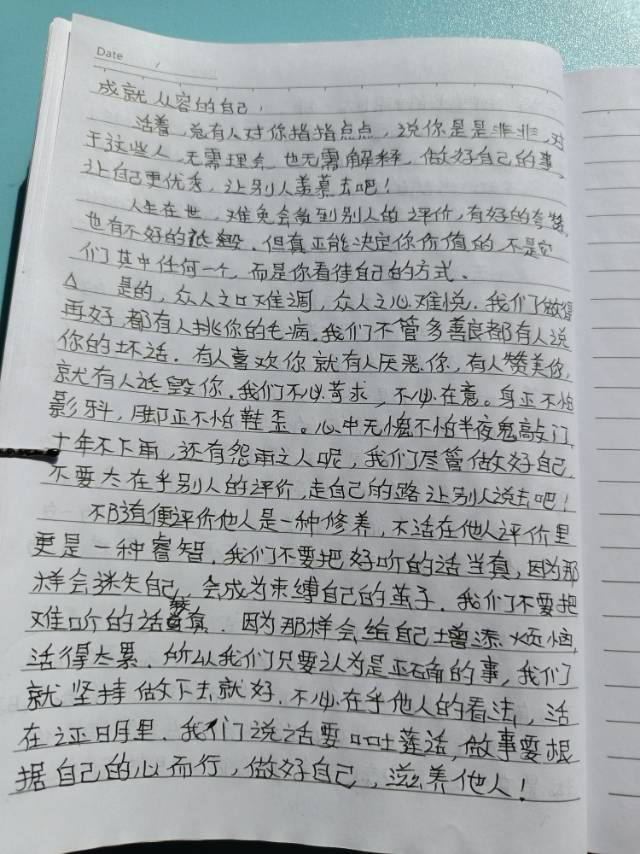 Date
成就从容的自己.
活着,总有人对你指指点点,说你是是非非,对
于这些人,无需理会,也无需解释,做好自己的事,
让自己更优秀,让别人羡慕去吧!
人生在世,难免会听到别人的评价,有好的夸赞,
也有不好的诋毁,但真正能决定你价值的,不是它
们其中任何一个,而是你看待自己的方式。
是的,众人之口难调,众人之心难悦,我们做得
再好,都有人挑你的毛病.我们不管多善良都有人说
你的坏话.有人喜欢你就有人厌恶你,有人赞美你,
就有人诋毁你.我们不必苛求,不必在意。身正不怕
影斜,脚正不怕鞋歪。心中无愧不怕半夜鬼敲门,
十年不下雨,还有怨雨之人呢,我们尽管做好自己,
不要太在乎别人的评价,走自己的路让别人说去吧!
不随便评价他人是一种修养,不活在他人评价里
更是一种睿智.我们不要把好听的话当真,因为那
样会迷失自己,会成为束缚自己的茧子.我们不要把
难听的话当真.因为那样会给自己增添烦恼,
活得太累.所以我们只要认为是正确的事,我们
就坚持做下去就好.不必在乎他人的看法,活
在证明里.我们说话要口吐莲话,做事要根
据自己的心而行,做好自己,滋养他人!